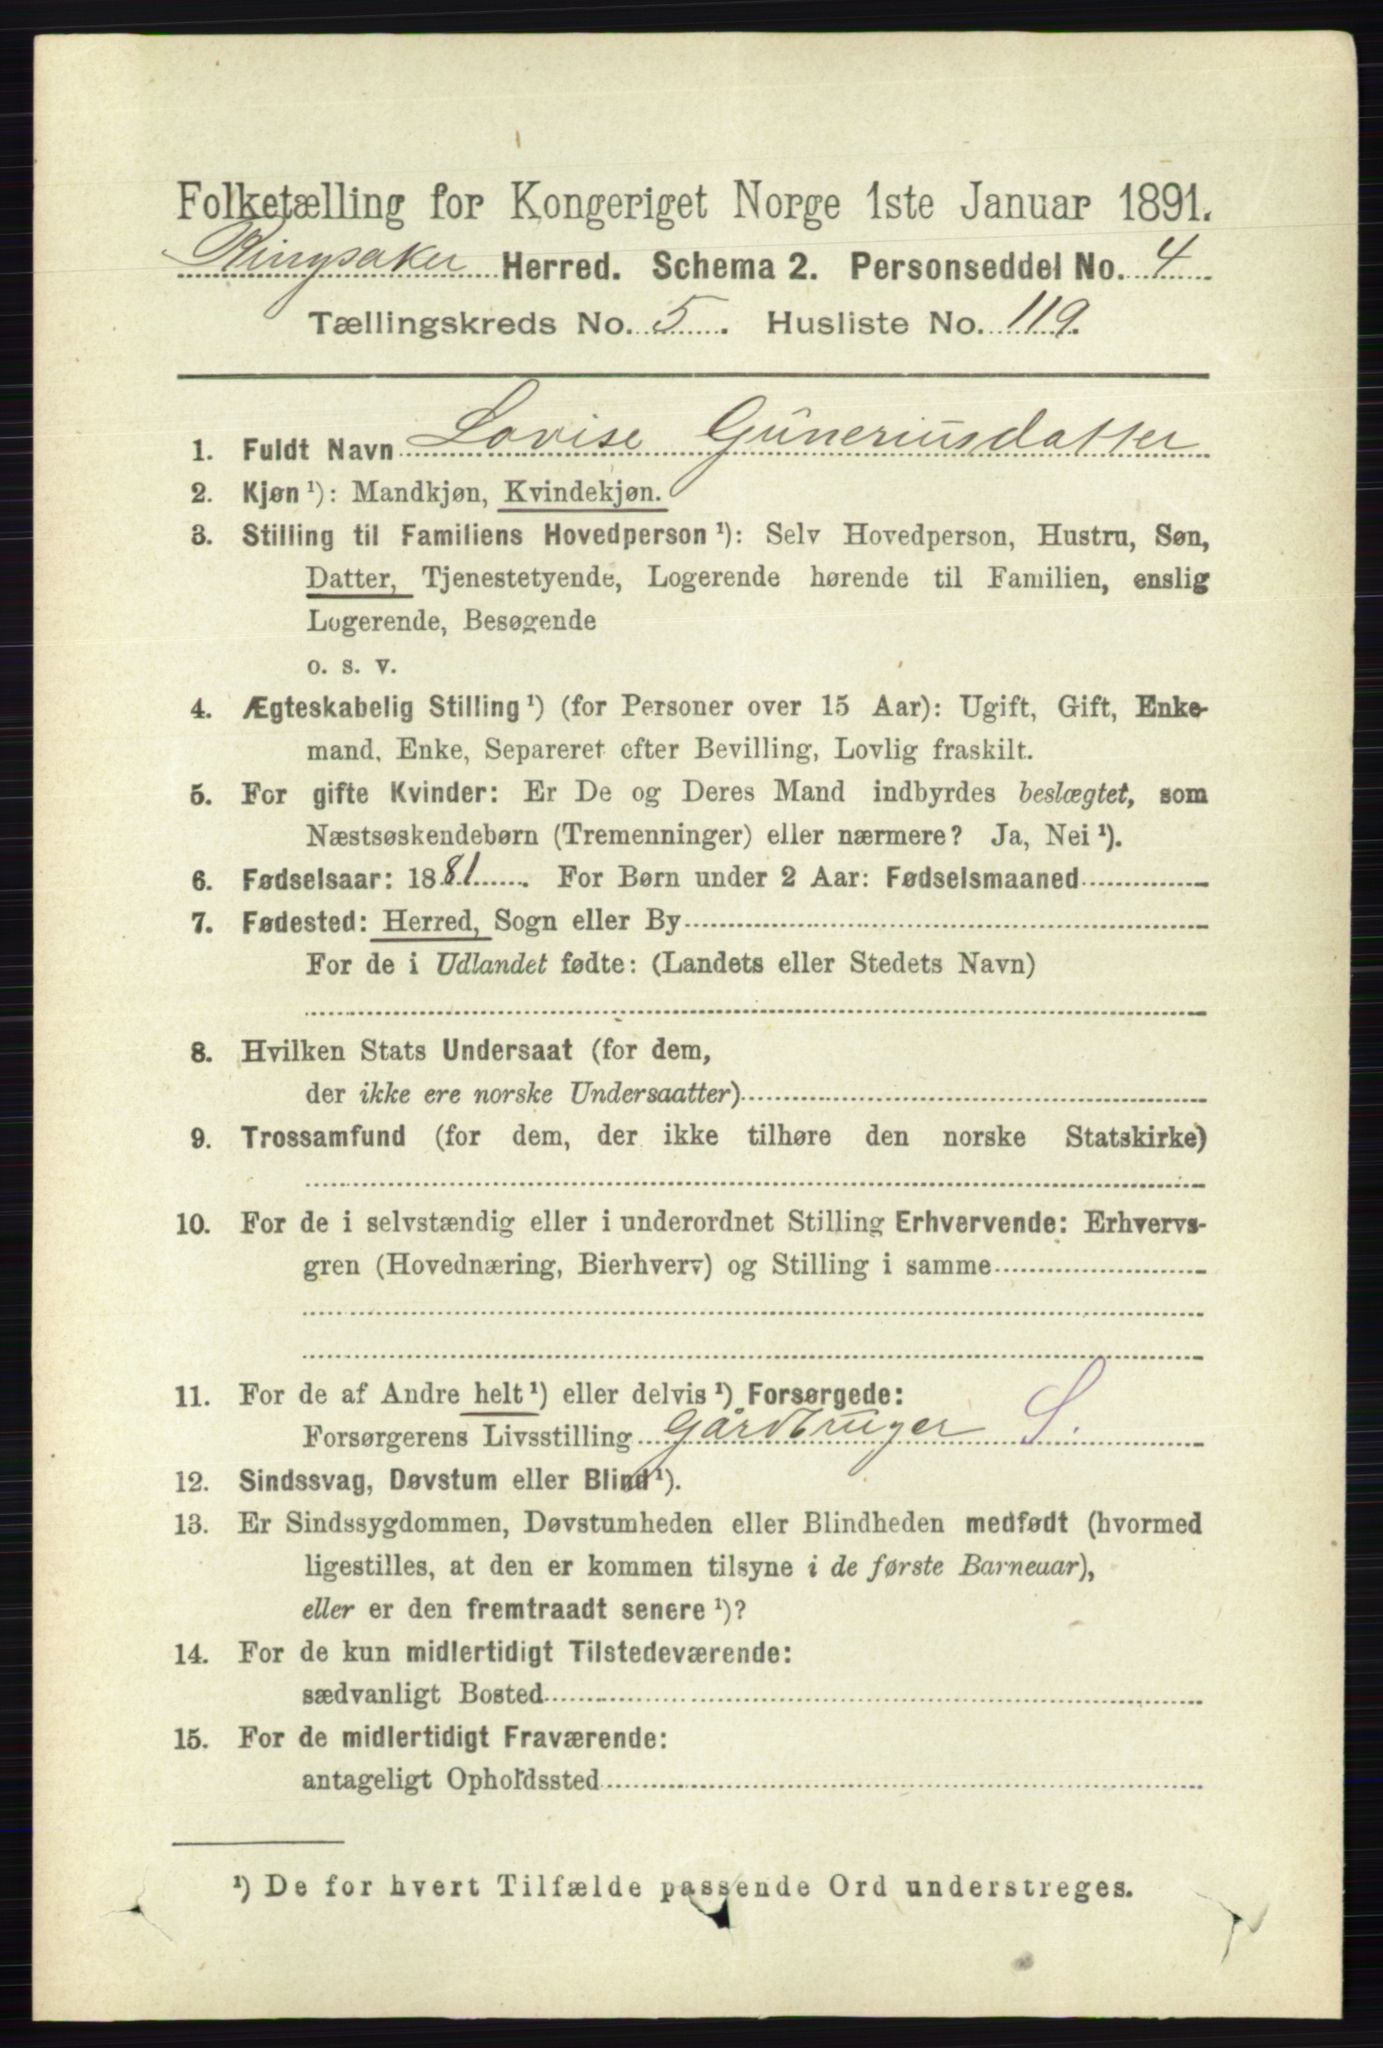 Folketælling for Kongeriget Norge 1ste Januar 1891.
Ringsaker Herred. Schema 2. Personseddel No. 4
Tællingskreds No. 5. Husliste No. 119.
1. Fuldt Navn Lovise Guneriusdatter
2. Kjøn ¹): Mandkjøn, Kvindekjøn.
3. Stilling til Familiens Hovedperson ¹): Selv Hovedperson, Hustru, Søn,
Datter, Tjenestetyende, Logerende hørende til Familien, enslig
Logerende, Besøgende
o. s. v.
4. Ægteskabelig Stilling ¹) (for Personer over 15 Aar): Ugift, Gift, Enke-
mand, Enke, Separeret efter Bevilling, Lovlig fraskilt.
5. For gifte Kvinder: Er De og Deres Mand indbyrdes beslægtet, som
Næstsøskendebørn (Tremenninger) eller nærmere? Ja, Nei ¹).
6. Fødselsaar: 1881. For Børn under 2 Aar: Fødselsmaaned
7. Fødested: Herred, Sogn eller By
For de i Udlandet fødte: (Landets eller Stedets Navn)
8. Hvilken Stats Undersaat (for dem,
der ikke ere norske Undersaatter)
9. Trossamfund (for dem, der ikke tilhøre den norske Statskirke)
10. For de i selvstændig eller i underordnet Stilling Erhvervende: Erhvervs-
gren (Hovednæring, Bierhverv) og Stilling i samme
11. For de af Andre helt ¹) eller delvis ¹) Forsørgede:
Forsørgerens Livsstilling Gårdbruger S.
12. Sindssvag, Døvstum eller Blind ¹).
13. Er Sindssygdommen, Døvstumheden eller Blindheden medfødt (hvormed
ligestilles, at den er kommen tilsyne i de første Barneaar),
eller er den fremtraadt senere ¹)?
14. For de kun midlertidigt Tilstedeværende:
sædvanligt Bosted
15. For de midlertidigt Fraværende:
antageligt Opholdssted
¹) De for hvert Tilfælde passende Ord understreges.